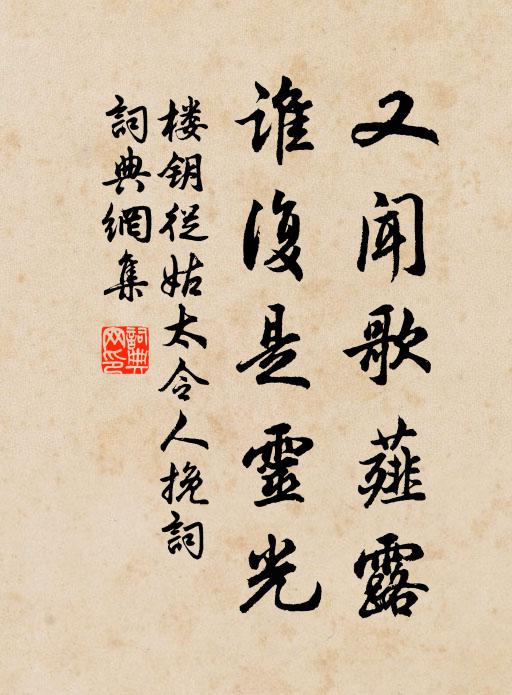 又闻歌薤露
谁復是靈光
楼钥從姑太令人挽詞
詞典網集
詞典网印